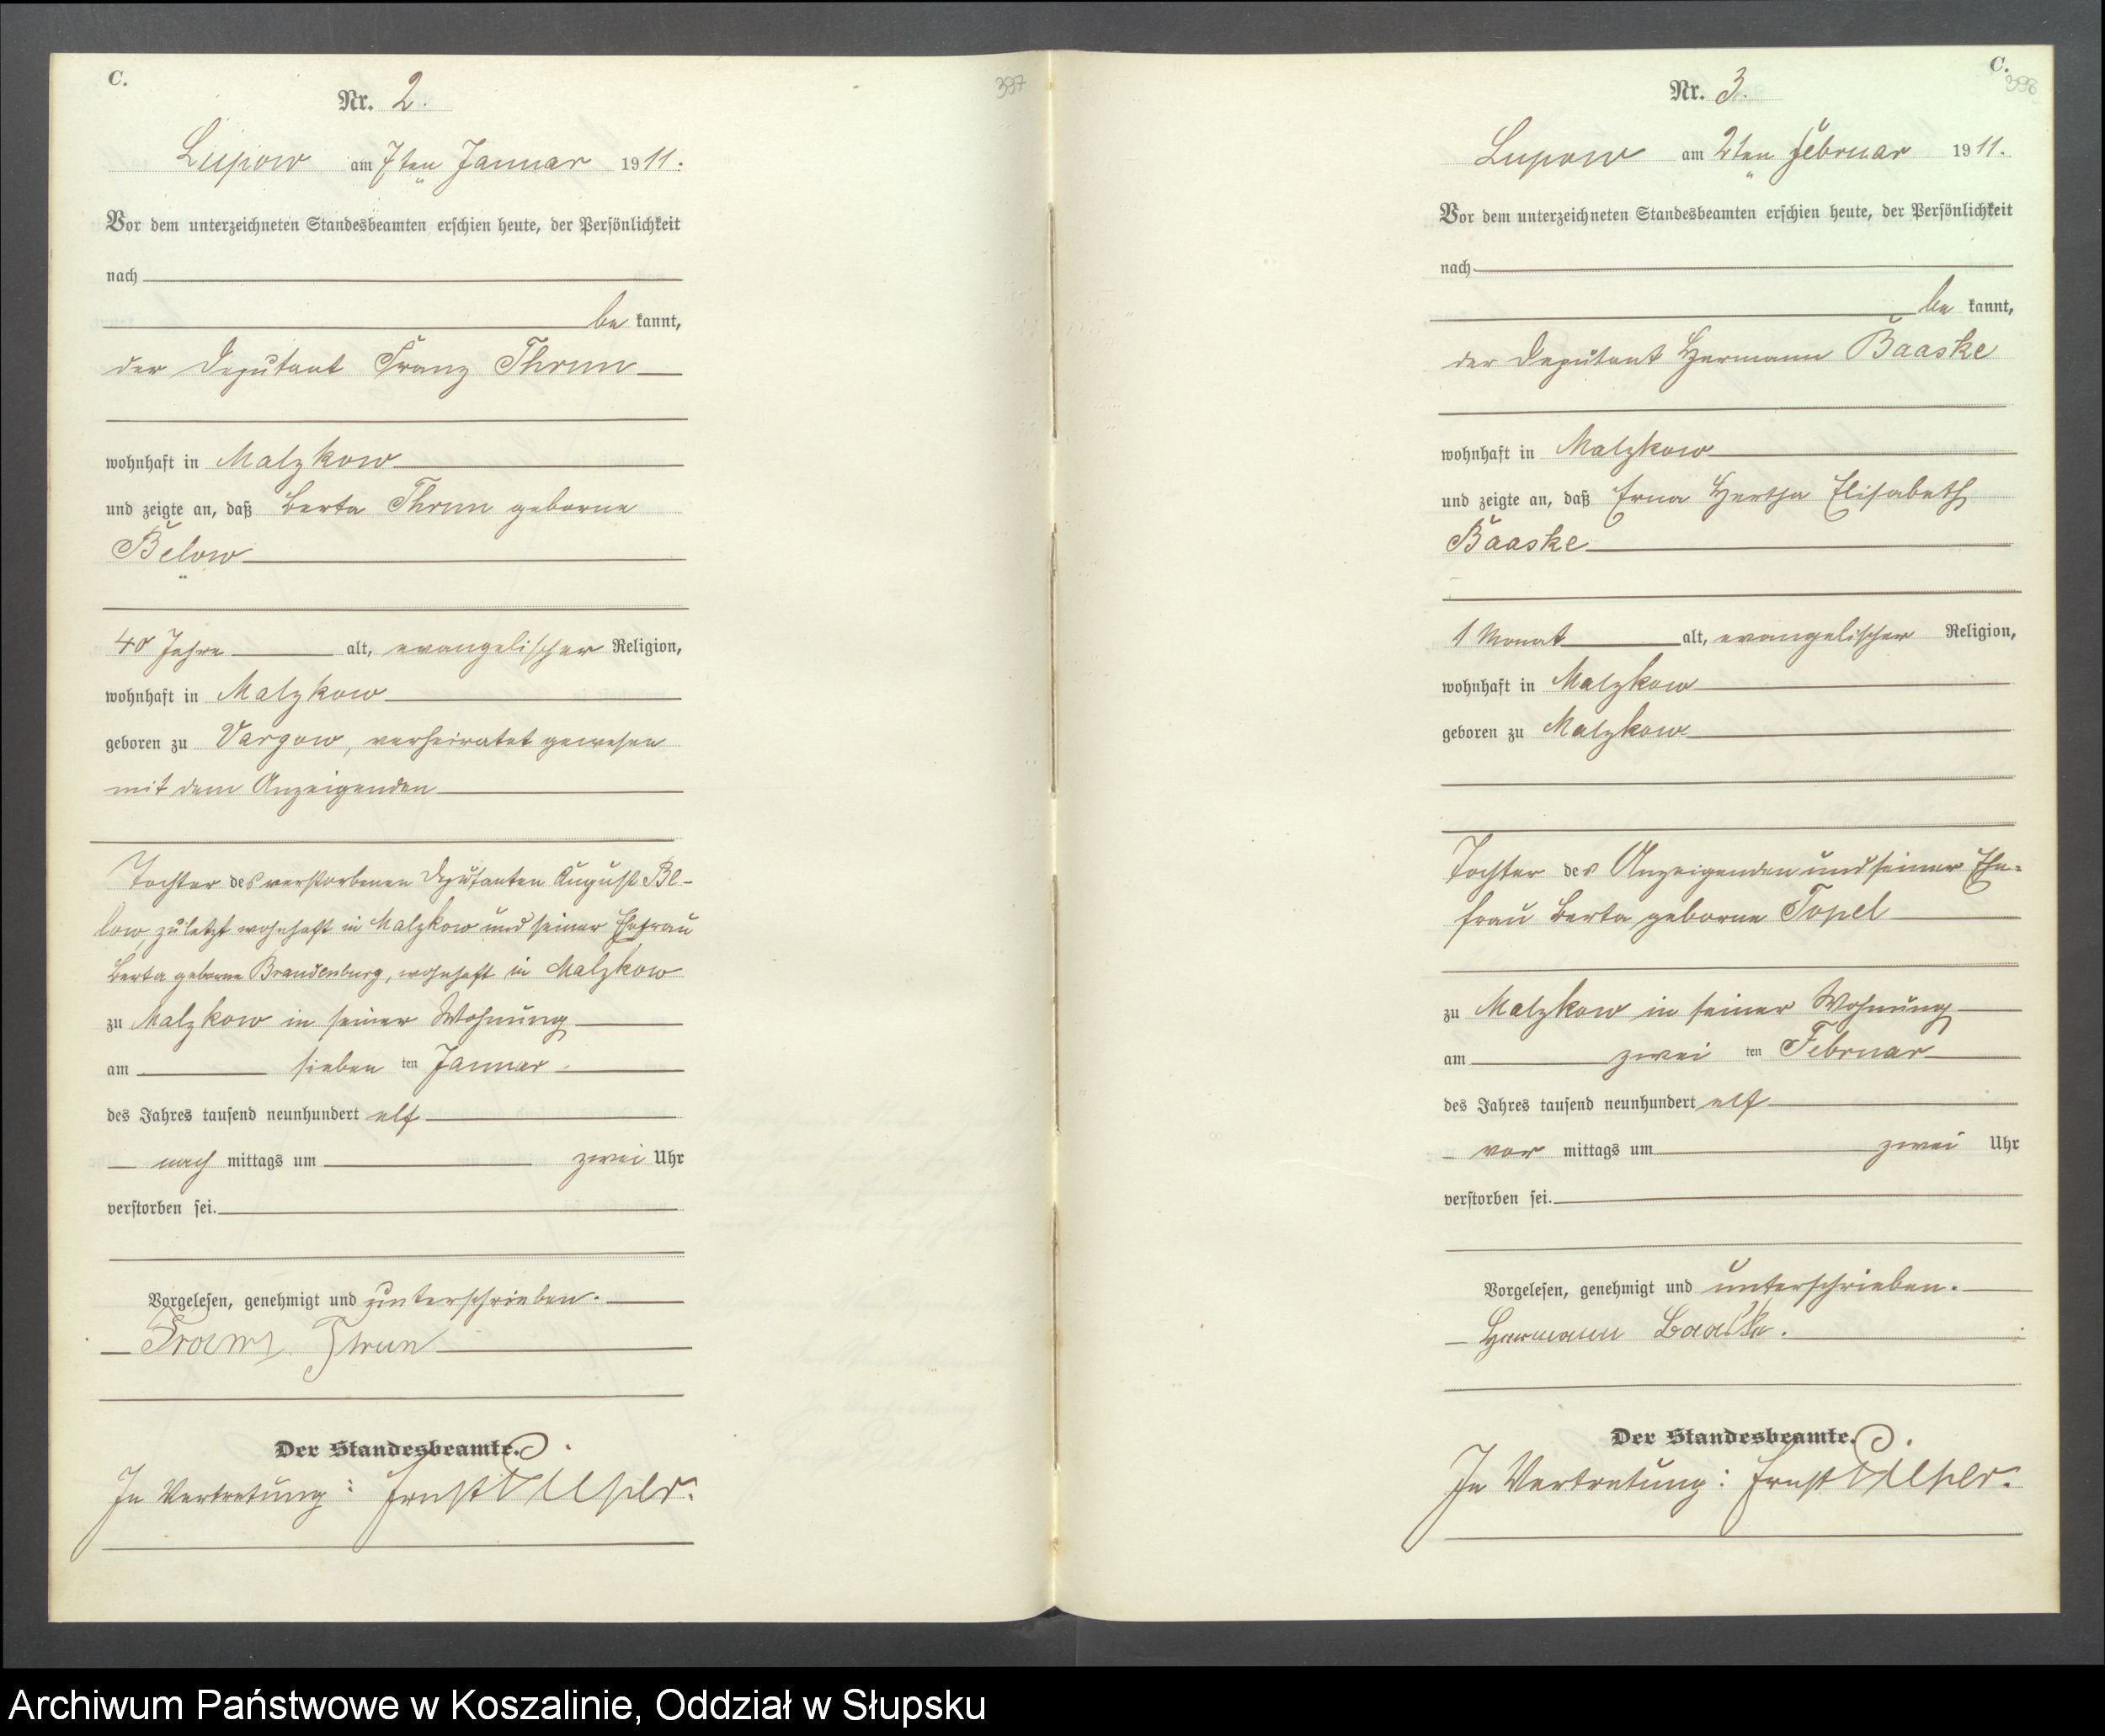 C.
397
Nr. 2.
Lupow am 7ten Januar 1911.
Vor dem unterzeichneten Standesbeamten erschien heute, der Persönlichkeit
nach
be kannt,
der Deputant Franz Thrun
wohnhaft in Malzkow
und zeigte an, daß Berta Thrun geborne
Below
40 Jahre alt, evangelischer Religion,
wohnhaft in Malzkow
geboren zu Vargow, verheiratet gewesen
mit dem Anzeigenden
Tochter des verstorbenen Deputanten August Be-
low, zuletzt wohnhaft in Malzkow und seiner Ehefrau
Berta geborne Brandenburg, wohnhaft in Malzkow
zu Malzkow in seiner Wohnung
am sieben ten Januar
des Jahres tausend neunhundert elf
nach mittags um zwei Uhr
verstorben sei.
Vorgelesen, genehmigt und unterschrieben.
Franz Thrun
Der Standesbeamte.
In Vertretung: Ernst
C.
398
Nr. 3.
Lupow am 2ten Februar 1911.
Vor dem unterzeichneten Standesbeamten erschien heute, der Persönlichkeit
nach
be kannt,
der Deputant Hermann Baaske
wohnhaft in Malzkow
und zeigte an, daß Erna Hertha Elisabeth
Baaske
1 Monat alt, evangelischer Religion,
wohnhaft in Malzkow
geboren zu Malzkow
Tochter des Anzeigenden und seiner Ehe=
frau Berta geborne Topel
zu Malzkow in seiner Wohnung
am zwei ten Februar
des Jahres tausend neunhundert elf
vor mittags um zwei Uhr
verstorben sei.
Vorgelesen, genehmigt und unterschrieben.
Hermann Baaske.
Der Standesbeamte.
In Vertretung: Ernst
Archiwum Państwowe w Koszalinie, Oddział w Słupsku